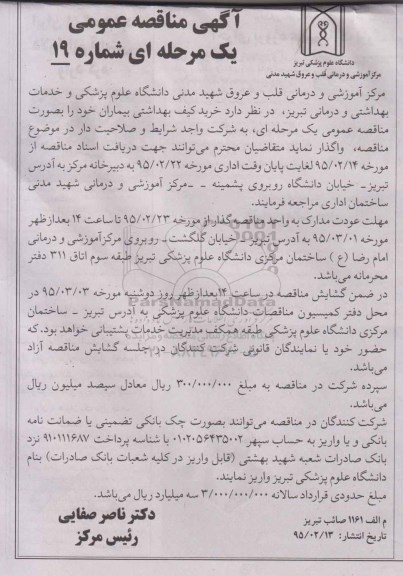 آگهی مناقصه عمومی
یک مرحله ای شماره ۱۹
دانشگاه علوم پزشکی تبریز
مرکز آموزشی و درمانی قلب و عروق شهید مدنی
مرکز آموزشی و درمانی قلب و عروق شهید مدنی دانشگاه علوم پزشکی و خدمات
بهداشتی و درمانی تبریز، در نظر دارد خرید کیف بهداشتی بیماران خود را بصورت
مناقصه عمومی یک مرحله ای، به شرکت واجد شرایط و صلاحیت دار در موضوع
مناقصه، واگذار نماید متقاضیان محترم می‌توانند جهت دریافت اسناد مناقصه از
مورخه ۹۵/۰۲/۱۴ لغایت پایان وقت اداری مورخه ۹۵/۰۲/۲۲ به دبیرخانه مرکز به آدرس
تبریز- خیابان دانشگاه روبروی پشمینه - -مرکز آموزشی و درمانی شهید مدنی
ساختمان اداری مراجعه فرمایند.
مهلت عودت مدارک به واحد مناقصه‌گذار از مورخه ۹۵/۰۲/۲۳ تا ساعت ۱۴ بعدازظهر
مورخه ۹۵/۰۳/۰۱ به آدرس تبریز - خیابان گلگشت - روبروی مرکز آموزشی و درمانی
امام رضا (ع) ساختمان مرکزی دانشگاه علوم پزشکی تبریز طبقه سوم اتاق ۳۱۱ دفتر
محرمانه می‌باشد.
در ضمن گشایش مناقصه در ساعت ۱۴بعدازظهر روز دوشنبه مورخه ۹۵/۰۳/۰۳ در
محل دفتر کمیسیون مناقصات دانشگاه علوم پزشکی به آدرس تبریز - ساختمان
مرکزی دانشگاه علوم پزشکی طبقه همکف مدیریت خدمات پشتیبانی خواهد بود. که
حضور خود یا نمایندگان قانونی شرکت کنندگان در جلسه گشایش مناقصه آزاد
می‌باشد.
سپرده شرکت در مناقصه به مبلغ ۳۰۰/۰۰۰/۰۰۰ ریال معادل سیصد میلیون ریال
می‌باشد.
شرکت کنندگان در مناقصه می‌توانند بصورت چک بانکی تضمینی یا ضمانت نامه
بانکی و یا واریز به حساب سپهر ۰۱۰۲۰۵۶۴۳۵۰۰۲ با شناسه پرداخت ۹۱۰۱۱۱۶۸۷ نزد
بانک صادرات شعبه شهید بهشتی (قابل واریز در کلیه شعبات بانک صادرات) بنام
دانشگاه علوم پزشکی تبریز واریز نمایند.
مبلغ حدودی قرارداد سالانه ۳/۰۰۰/۰۰۰/۰۰۰ سه میلیارد ریال می‌باشد.
دکتر ناصر صفایی
رئیس مرکز
م الف ۱۱۶۱ صائب تبریز
تاریخ انتشار: ۹۵/۰۲/۱۳
ParsNamadData